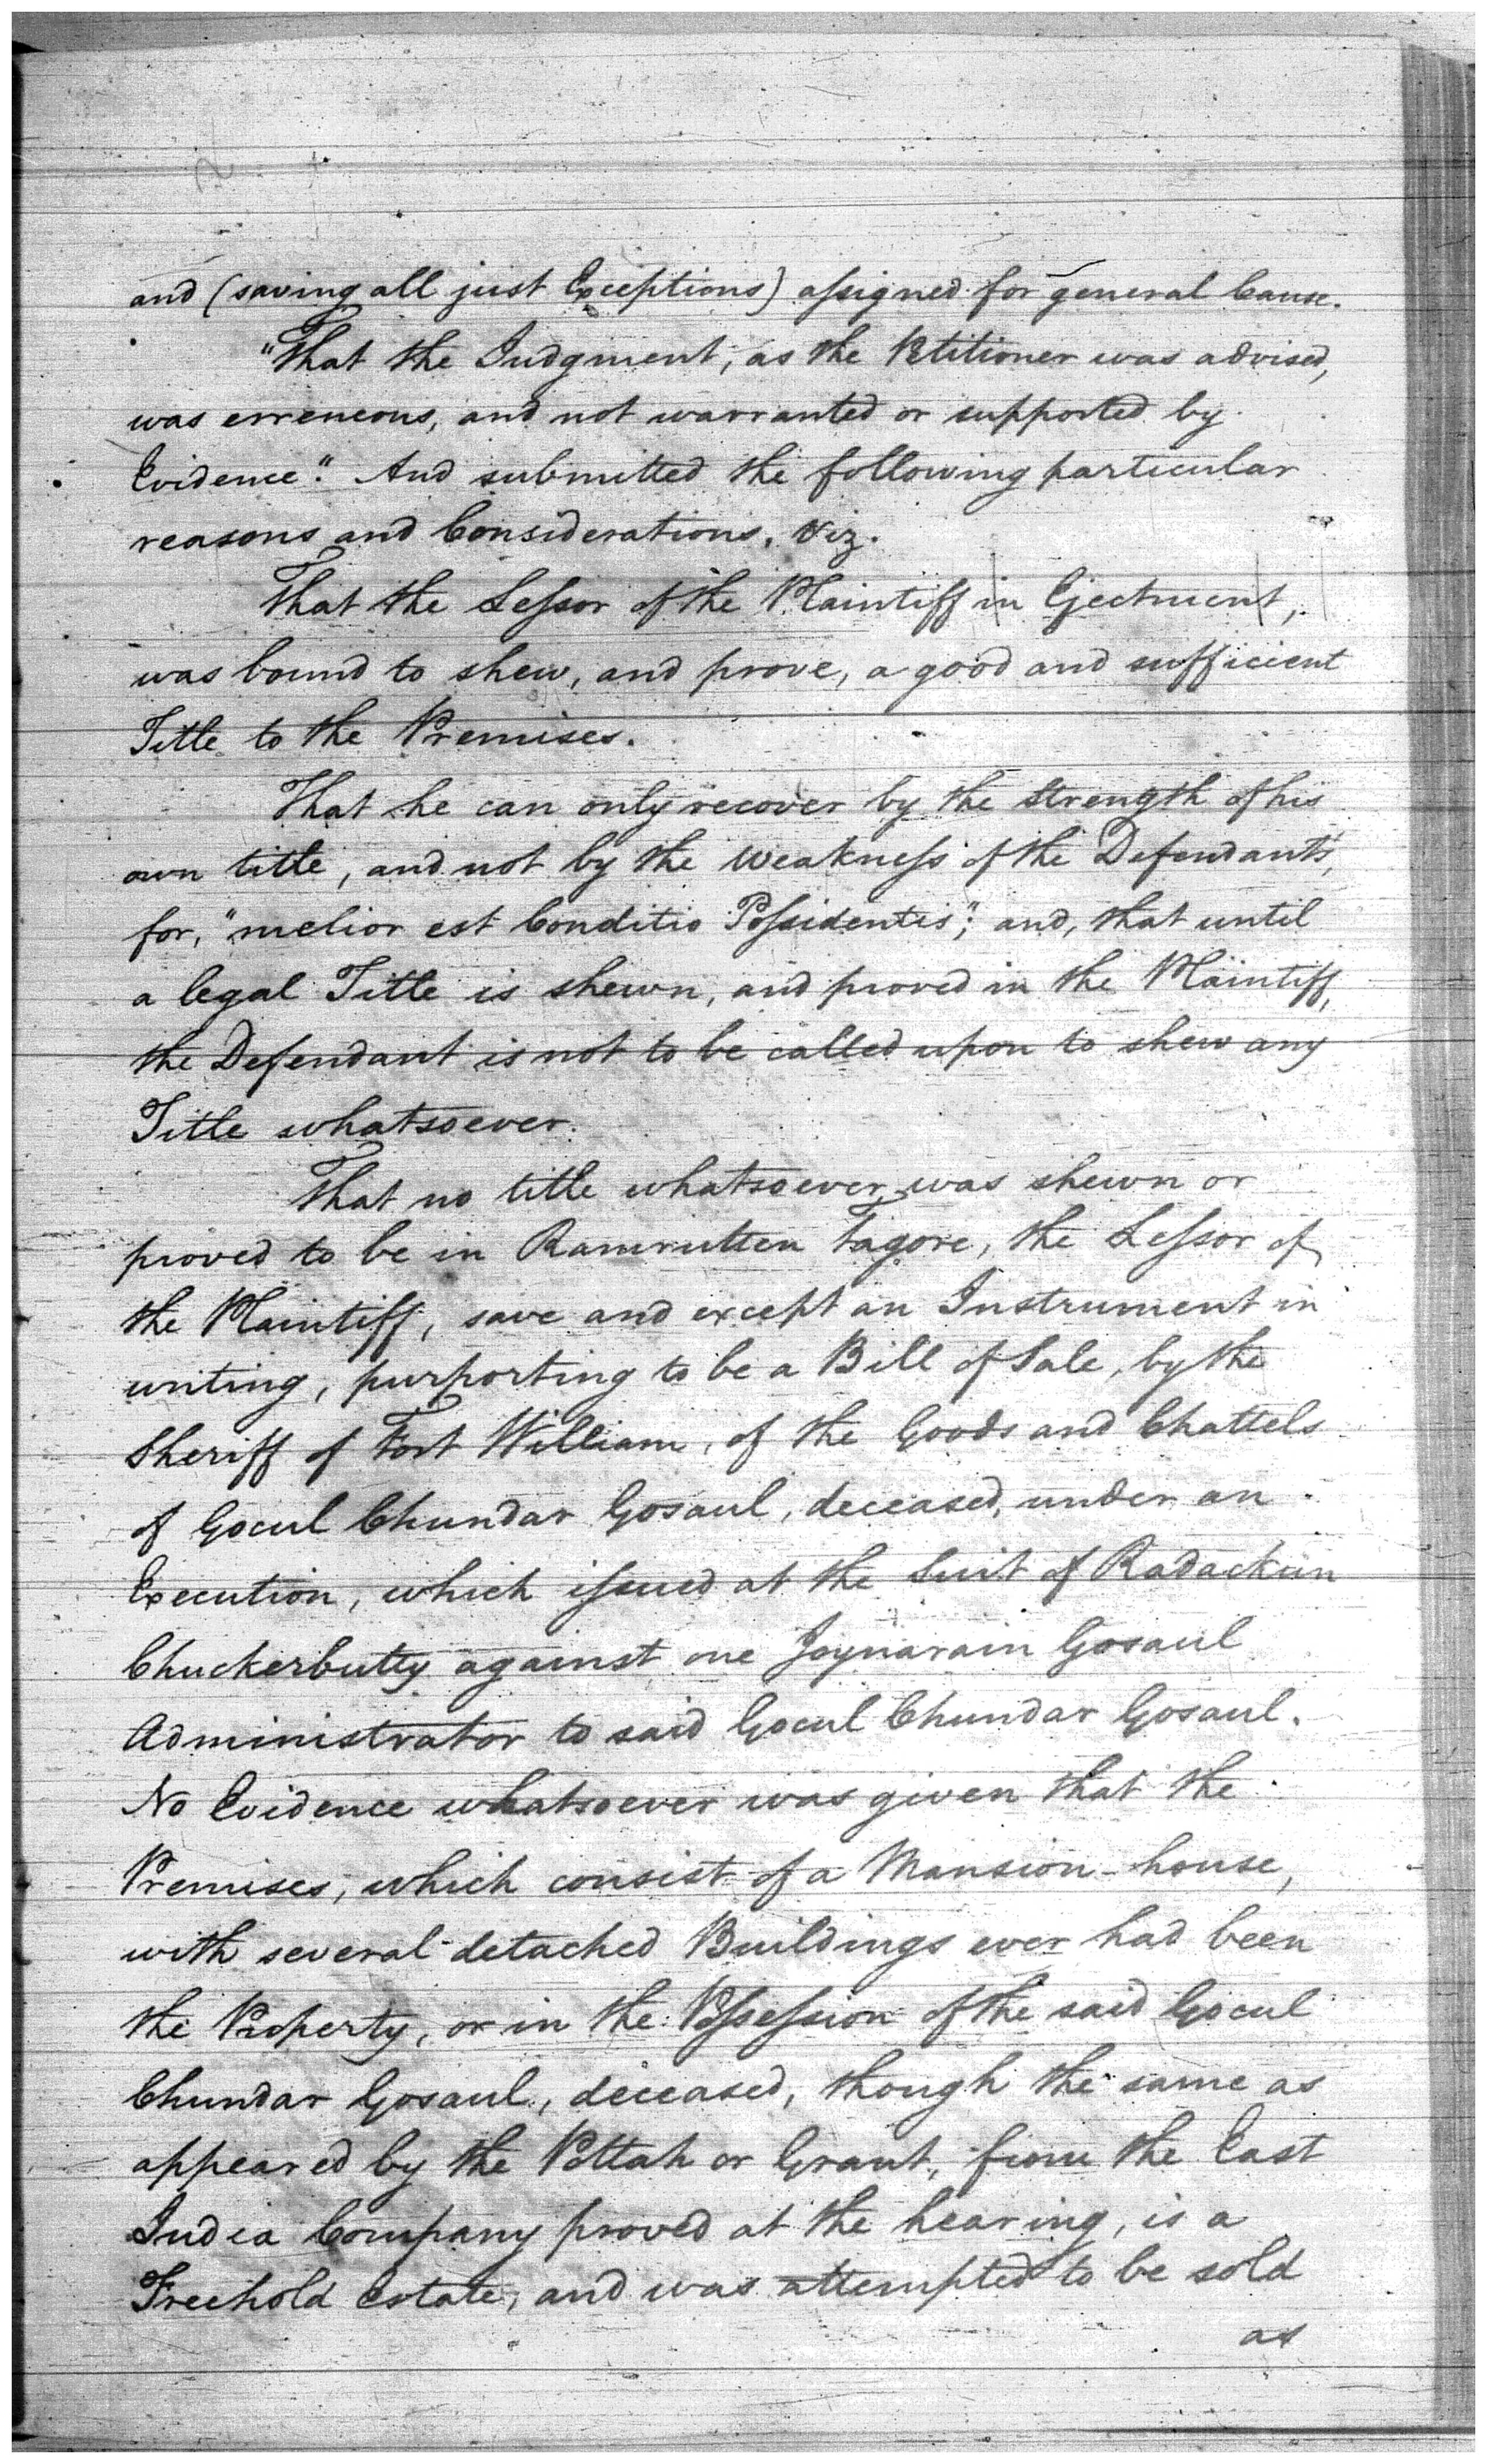 and (saving all just Exceptions) aſsigned for general Cause.
"That the Judgment, as the Petitioner was advised,
was erreneous, and not warranted or supported by
Evidence". And submitted the following particular
reasons and Considerations, Viz.
That the Leſsor of the Plaintiff in Ejectment,
was bound to shew, and prove, a good and sufficient
Title to the Premises.
That he can only recover by the Strength of his
own title, and not by the Weakneſs of the Defendants',
for, "melior est Conditio Poſsidentis"; and, that until
a legal Title is shewn, and proved in the Plaintiff,
the Defendant is not to be called upon to shew any
Title whatsoever.
That no title whatsoever was shewn or
proved to be in Ramrutten Tagore, the Leſsor of
the Plaintiff, save and except an Instrument in
writing, purporting to be a Bill of Sale, by the
Sheriff of Fort William, of the Goods and Chattels
of Gocul Chundar Gosaul, deceased, under an
Execution, which iſsued at the Suit of Radackun
Chuckerbutty against one Joynarain Gosaul
Administrator to said Gocul Chundar Gosaul.
No Evidence whatsoever was given that the
Premises, which consist of a Mansion-house,
with several detached Buildings ever had been
the Property, or in the Poſseſsion of the said Gocul
Chundar Gosaul, deceased, though the same as
appeared by the Pottah or Grant, from the East
India Company proved at the hearing, is a
Freehold Estate, and was attempted to be sold
as